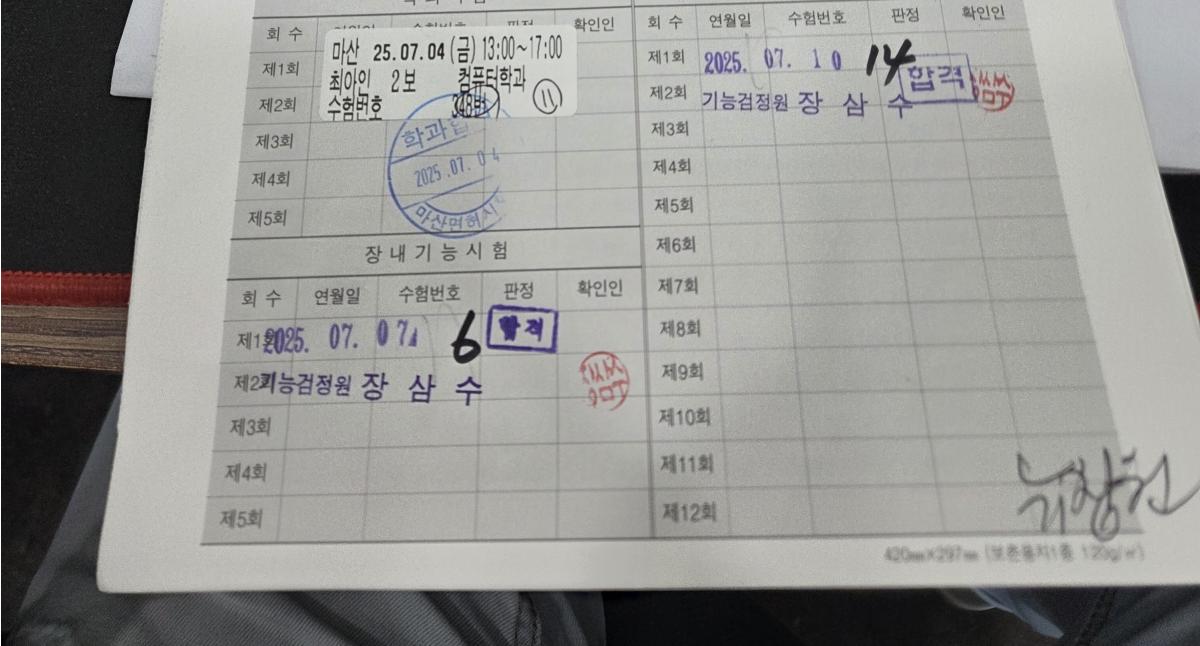 회 수 확인인
마산 25.07.04(금) 13:00~17:00
최아인 2보 컴퓨터학과
수험번호 348번 11
제1회
제2회
제3회
제4회
제5회
학과합
2025.07.04
마산면허시
장내기능시험
회 수 연월일 수험번호 판정 확인인
제1회 2025. 07. 07. 6 합격
제2회 기능검정원 장 삼 수
제3회
제4회
제5회
회 수 연월일 수험번호 판정 확인인
제1회 2025. 07. 10 14 합격
제2회 기능검정원 장 삼 수
제3회
제4회
제5회
제6회
제7회
제8회
제9회
제10회
제11회
제12회
420㎜×297㎜ (보존용지1종 120g/㎡)